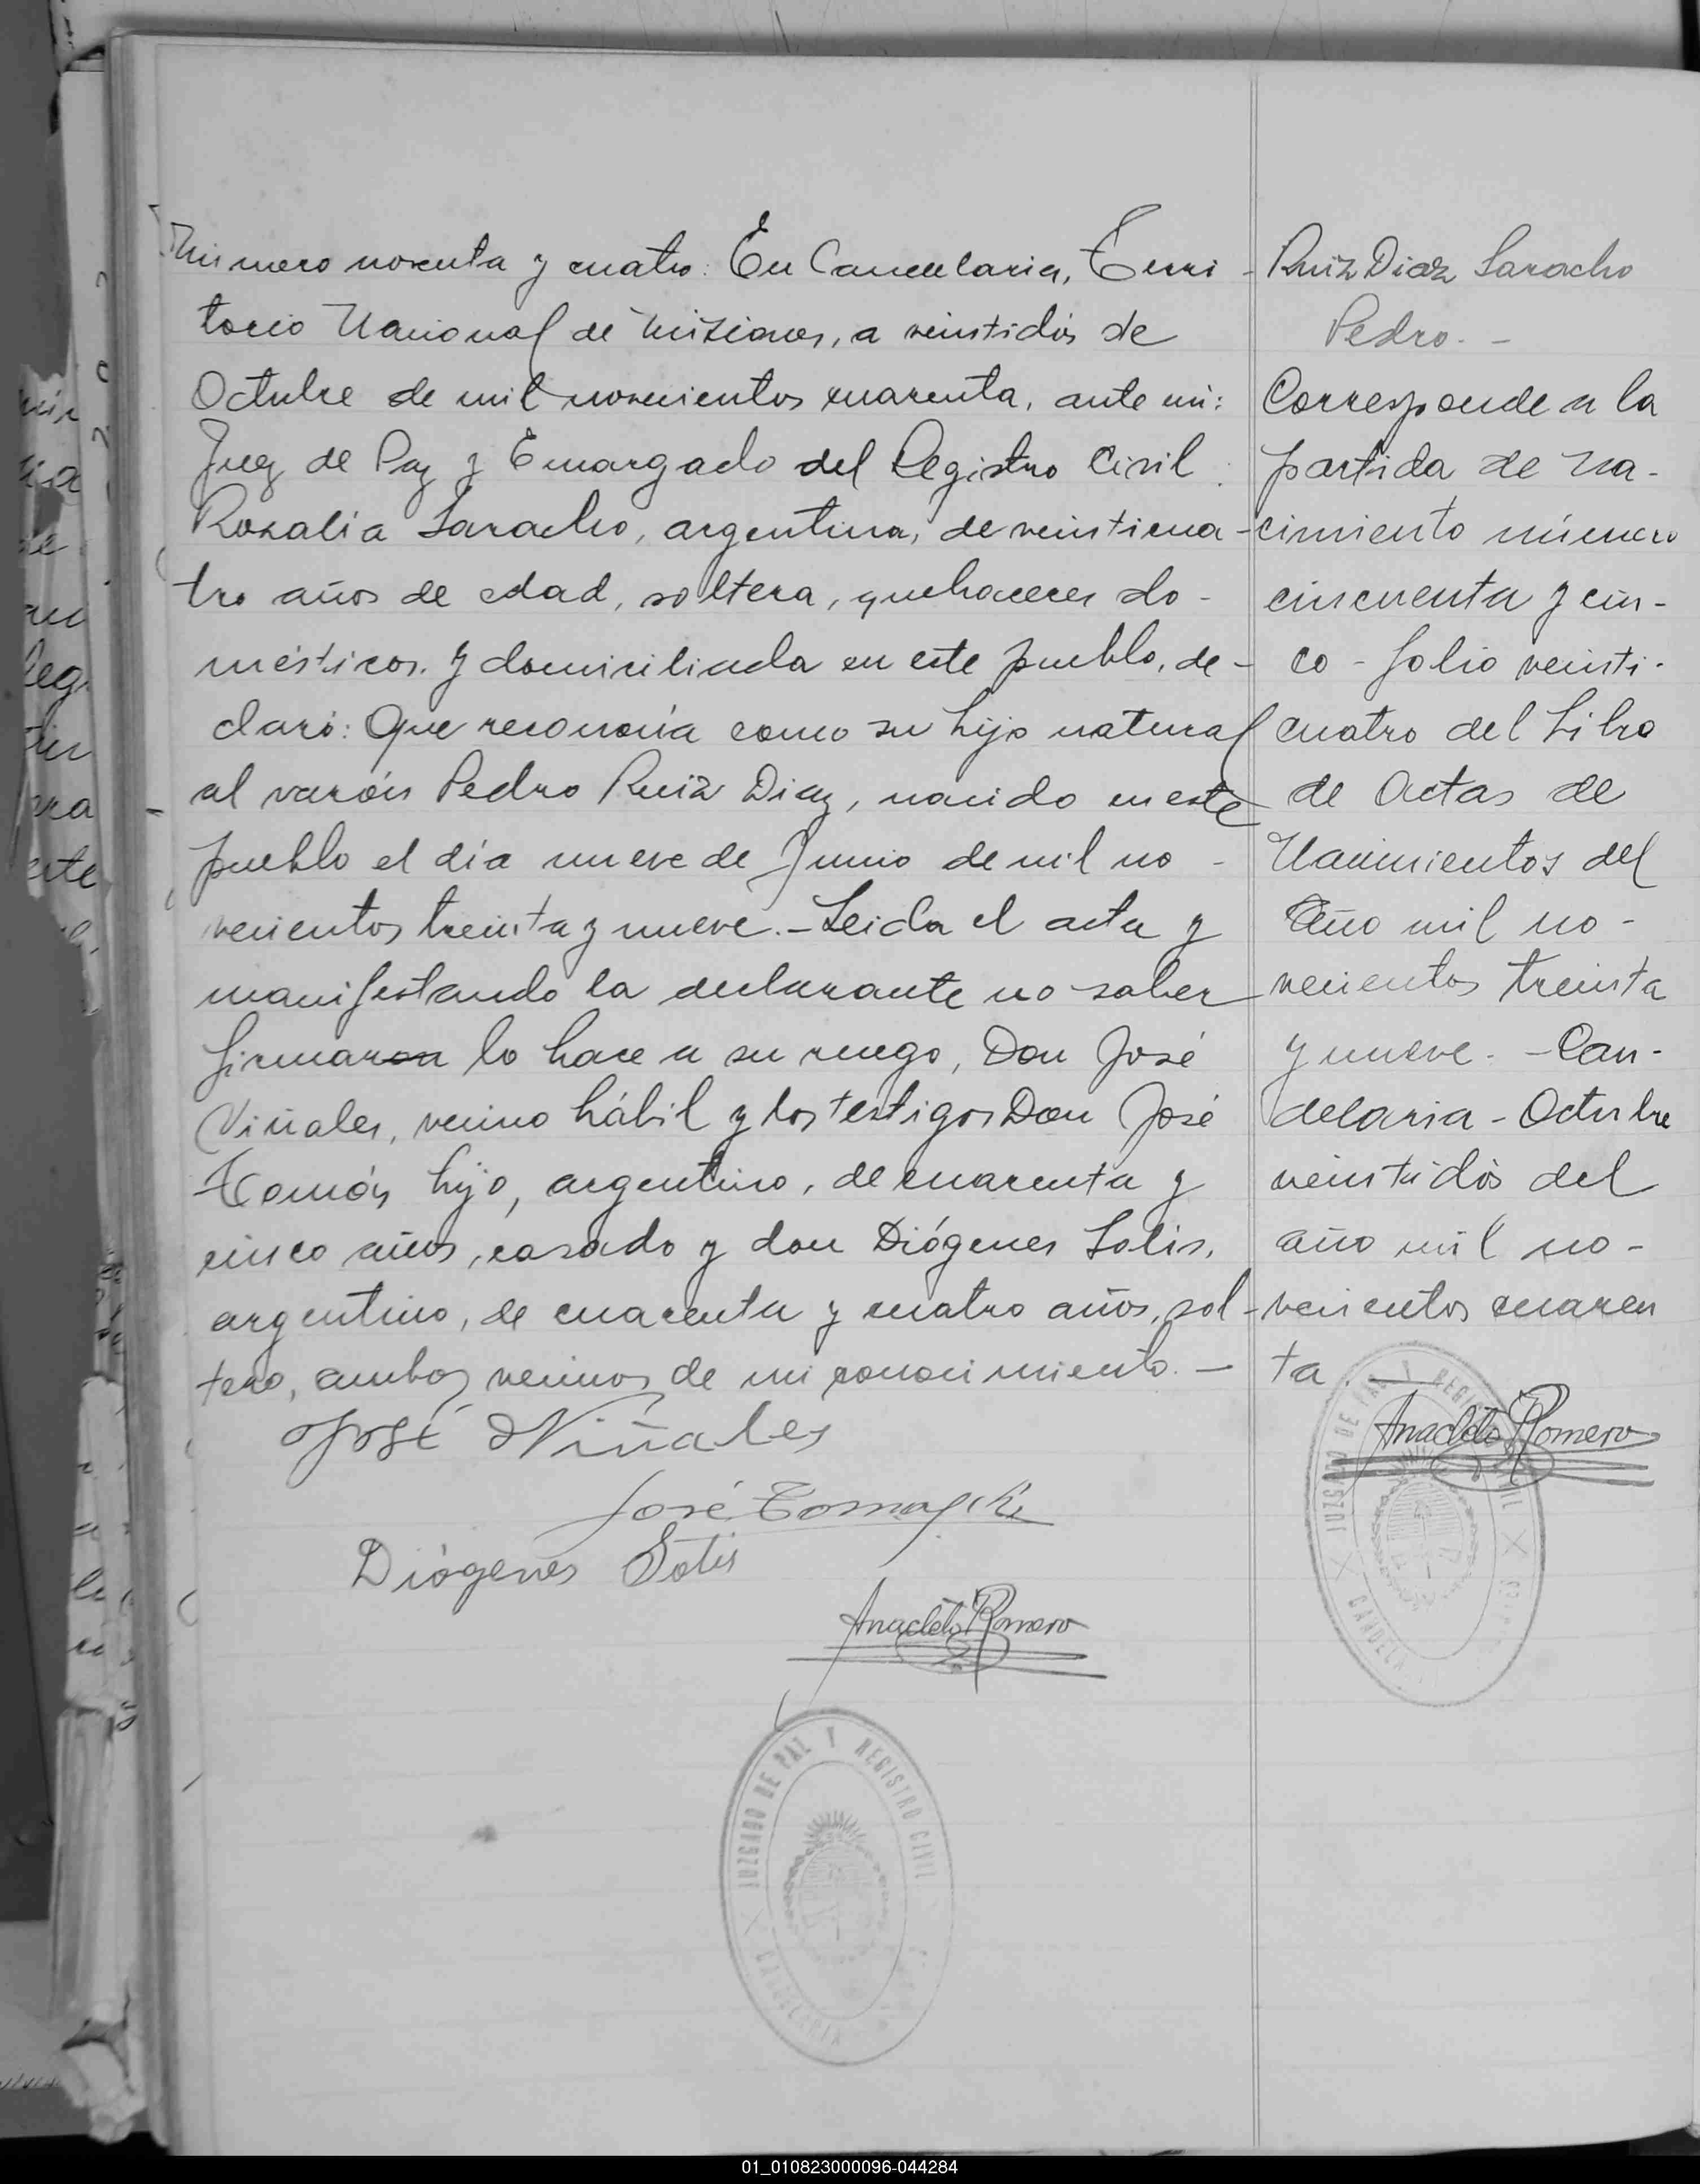 Número noventa y cuatro: En Candelaria, Terri-
torio Nacional de Misiones, a veintidós de
Octubre de mil novecientos cuarenta, ante mi:
Juez de Paz y Encargado del Registro Civil:
Rosalia Saracho, argentina, de veinticua-
tro años de edad, soltera, quehaceres do-
mésticos. y domiciliada en este pueblo, de-
claró: Que reconocía como su hijo natural
al varón Pedro Ruiz Diaz, nacido en este
pueblo el día nueve de Junio de mil no-
vecientos treinta y nueve.- Leida el acta y
manifestando la declarante no saber
firmaron lo hace a su ruego, Don José
Viñales, vecino hábil y los testigos Don José
Tomás hijo, argentino, de cuarenta y
cinco años, casado y don Diógenes Solis,
argentino, de cuarenta y cuatro años, sol-
tero, ambos vecinos de mi conocimiento.-
José Viñales
José Tomas
Diógenes Solis
Anacleto Romero
JUZGADO DE PAZ Y REGISTRO CIVIL
CANDELARIA
Ruiz Diaz Saracho
Pedro.-
Corresponde a la
partida de na-
cimiento número
cincuenta y cin-
co - folio veinti-
cuatro del Libro
de Actas de
Nacimientos del
año mil no-
vecientos treinta
y nueve. - Can-
delaria - Octubre
veintidós del
año mil no-
vecientos cuaren
ta.
Anacleto Romero
JUZGADO DE PAZ Y REGISTRO CIVIL
01_010823000096-044284